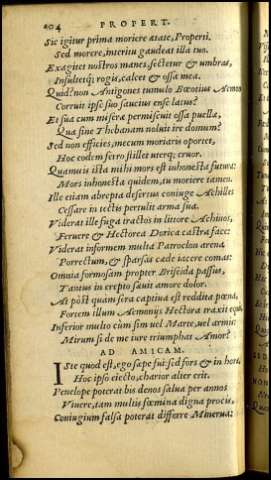 204 PROPERT.
Sic igitur prima moriere ætate, Properti.
Sed morere, interitu gaudeat illa tuo.
Exagitet nostros manes, sectetur & umbras,
Insultetq; rogis, calcet & ossa mea.
Quid? non Antigones tumulo Bœotius Aemon
Corruit ipse suo saucius ense latus?
Et sua cum misera permiscuit ossa puella,
Qua sine Thebanam noluit ire domum?
Sed non efficies, mecum moriaris oportet,
Hoc eodem ferro stillet uterq; cruor.
Quamuis ista mihi mors est inhonesta futura:
Mors inhonesta quidem, tu moriere tamen.
Ille etiam abrepta desertus coniuge Achilles
Cessare in tectis pertulit arma sua.
Viderat ille fuga tractos in littore Achiuos,
Feruere & Hectorea Dorica castra face:
Viderat informem multa Patroclon arena
Porrectum, & sparsas cæde iacere comas:
Omnia formosam propter Briseida passus,
Tantus in erepto sæuit amore dolor.
At pòst quàm sera captiua est reddita pœna,
Fortem illum Aemonijs Hectora traxit equis.
Inferior multo cùm sim uel Marte, uel armis:
Mirum si de me iure triumphat Amor?
AD AMICAM.
ISte quod est, ego sæpe fui: sed fors & in hora
Hoc ipso eiecto, charior alter erit.
Penelope poterat bis denos salua per annos
Viuere, tam multis fœmina digna procis,
Coniugium falsa poterat differre Minerua: